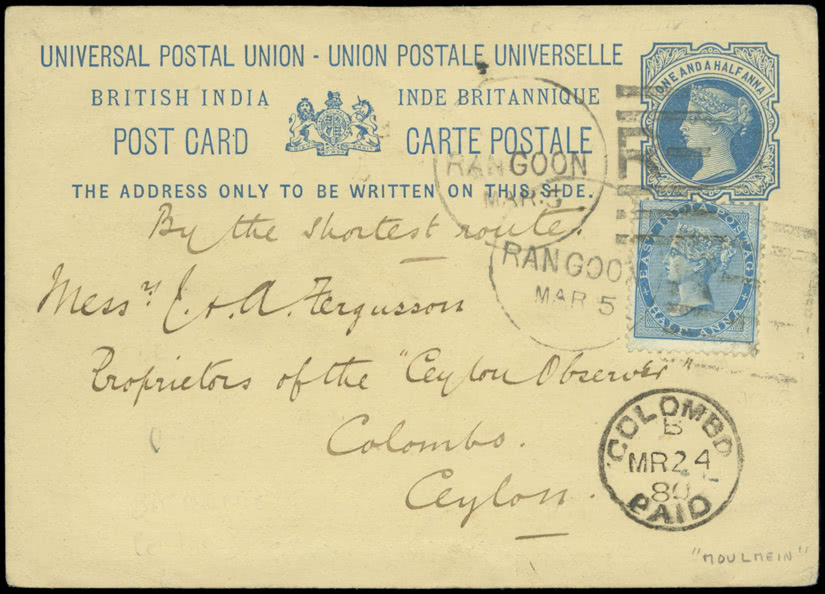 UNIVERSAL POSTAL UNION - UNION POSTALE UNIVERSELLE
BRITISH INDIA INDE BRITANNIQUE
POST CARD CARTE POSTALE
THE ADDRESS ONLY TO BE WRITTEN ON THIS SIDE.
ONE AND A HALF ANNA
RANGOON
MAR. 5
By the shortest route.
RANGOO
MAR 5
EAST INDIA POSTAGE
HALF ANNA
Messrs J. & A. Fergusson
Proprietors of the "Ceylon Observer"
Colombo.
Ceylon.
COLOMBO
B
MR 24
80
PAID
"MOULMEIN"